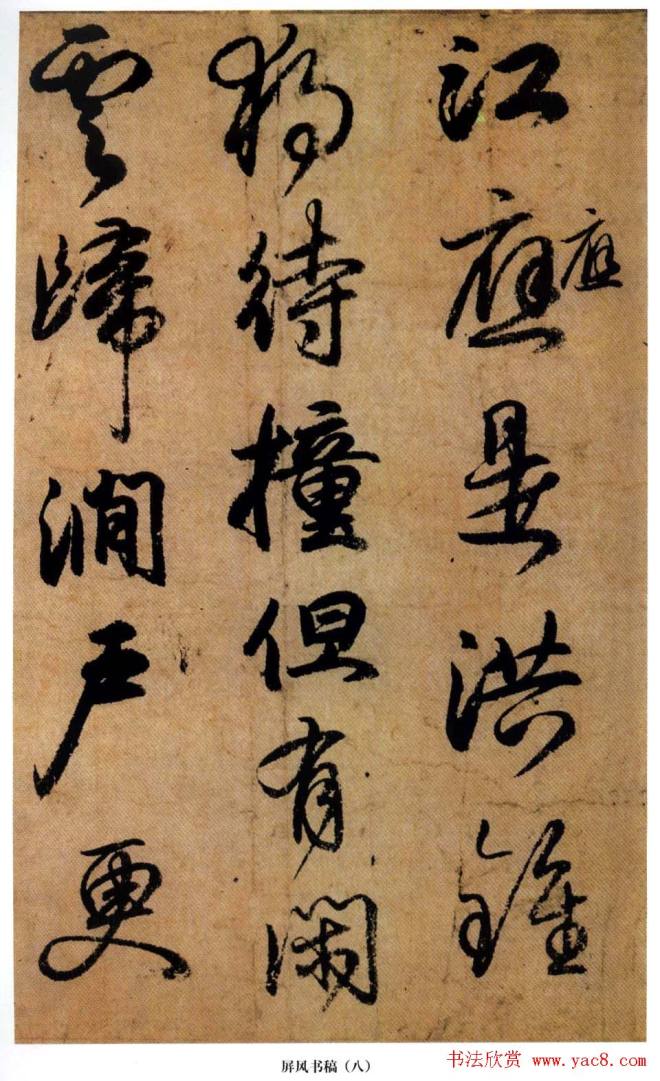 江應應是洪鐘
獨待撞但有閑
雲歸澗戶更
屏风书稿（八）
书法欣赏 www.yac8.com